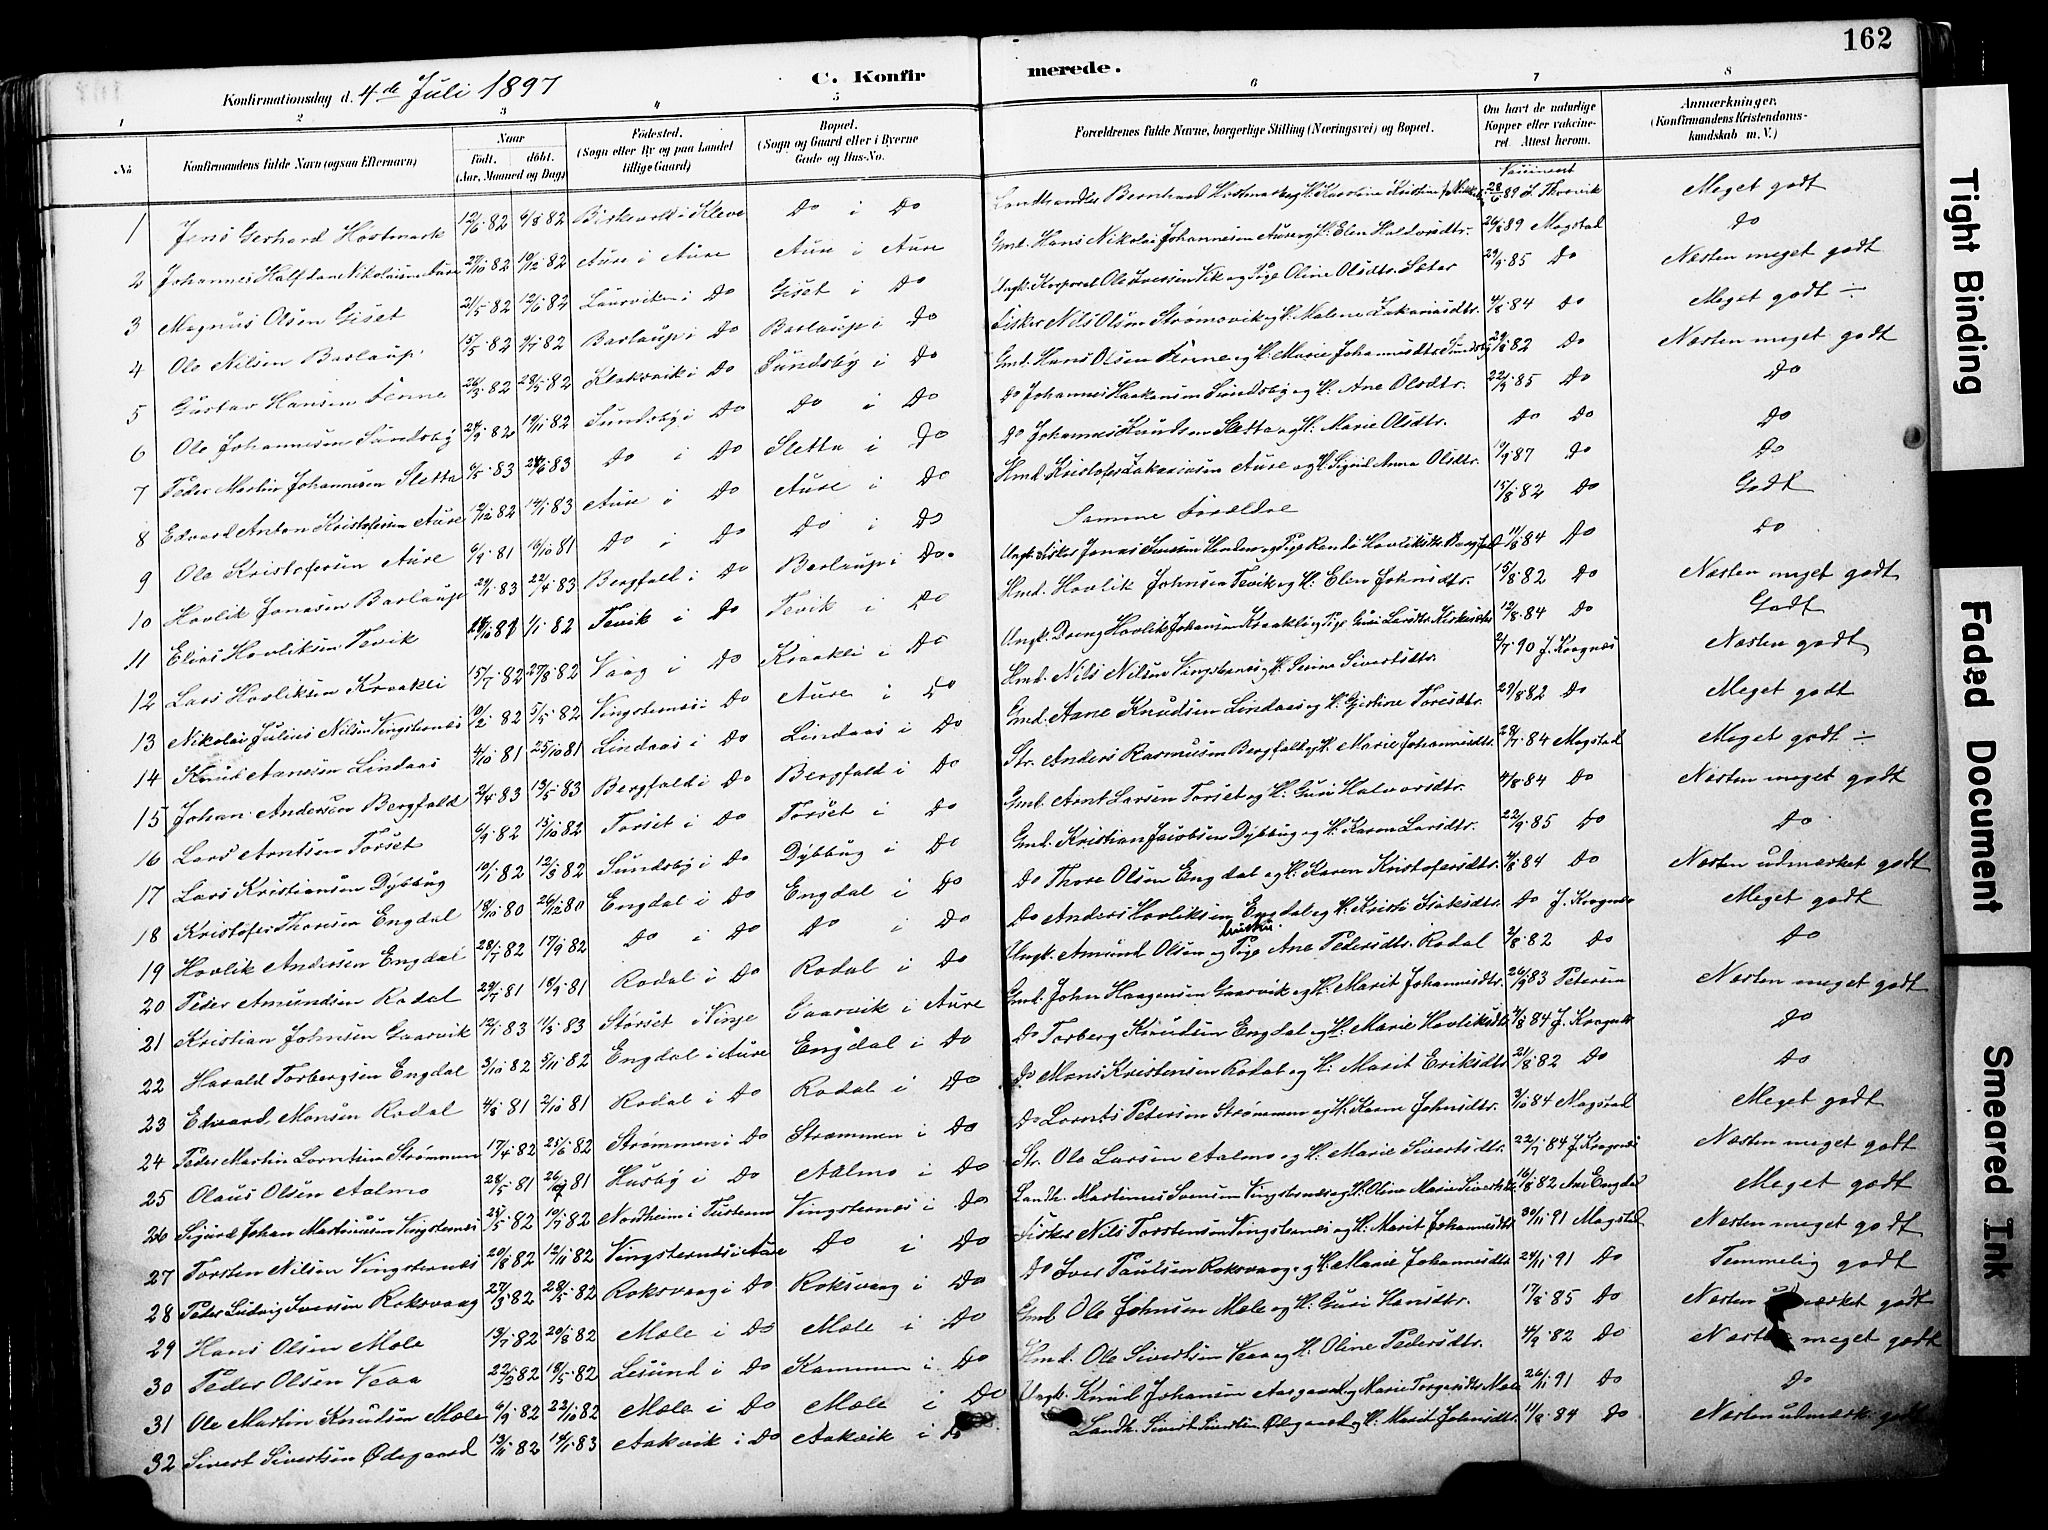 162
Konfirmationsdag d. 4de Juli 1897
C. Konfirmerede.
1 2 3 4 5 6 7 8
No Konfirmandens fulde Navn (ogsaa Efternavn) Naar födt. döbt. (Aar, Maaned og Dag) Födested. (Sogn eller By og paa Landet tillige Gaard) Bopæl. (Sogn og Gaard eller i Byerne Gade og Hus-No. Forældrenes fulde Navne, borgerlige Stilling (Næringsvei) og Bopæl. Om havt de naturlige Kopper eller vakcineret. Attest herom. Anmærkninger. (Konfirmandens Kristendomskundskab m. V.)
1 Jens Gerhard Hostmark 12/6 82 6/8 82 Do i Do Landhandler Bernhard Hostmark og H. Karoline Kristine 28/6 89 Meget godt
2 Johannes Halfdan Nikolaisen Aure 27/10 82 10/12 82 Aure i Aure Aure i Aure Gmd. Hans Nikolai Johannesen Aure og H. Elen Haldorsdtr. 26/8 89 Magstad Do
3 Magnus Olsen Giset 21/5 82 12/6 82 Laurvik i Do Giset i Do Ungk. Korporal Ole Iversen Vik og Pige Oline Olsdtr. Sæter 29/9 85 Do Næsten meget godt
4 Ole Nilsen Barlaup 15/5 82 9/7 82 Barlaup i Do Barlaup i Do Fisker Nils Olsen Strømsvik og H. Malene Zakariasdtr. 4/8 84 Do Meget godt ÷
5 Gustav Hansen Finne 26/3 82 28/5 82 Klaksvik i Do Sundsby i Do Gmd. Hans Olsen Finne og H. Marie Johannesdtr. Sundsby 29/8 82 Do Næsten meget godt
6 Ole Johannesen Sundsby 24/9 82 19/11 82 Sundsby i Do Do i Do Do Johannes Haakensen Sundsby og H. Ane Olsdtr. 22/9 85 Do Do
7 Peder Martin Johannesen Sletta 6/5 83 24/6 83 Do i Do Sletta i Do Do Johannes Knudsen Sletta og H. Marie Olsdtr. Do Do Do
8 Edvard Anton Kristofersen Aure 12/12 82 14/1 83 Aure i Do Aure i Do Hmd. Kristofer Zakariasen Aure og H. Sigrid Anna Olsdtr. 19/9 87 Do Do
9 Ole Kristofersen Aure 6/9 81 16/10 81 Do i Do Do i Do Samme Forældre 15/8 82 Do Godt
10 Hovlik Jonasen Barlaup 29/1 83 22/4 83 Bergfald i Do Barlaup i Do. Ungk. Fisker Jonas Iversen og Pige Randi Hovliksdtr. Bergfald 11/8 84 Do Do
11 Elias Hovliksen Tevik 1/1 82 Tevik i Do Tevik i Do Hmd. Hovlik Johnsen Tevik og H. Elen Johnsdtr. 15/8 82 Do Næsten meget godt
12 Lars Hovliksen Kraakli 15/7 82 27/8 82 Vaag i Do Kraakli i Do Ungk. Dreng Hovlik Johansen Kraakli og Pige Guri Larsdtr. 12/8 84 Do Godt
13 Nikolai Julius Nilsen Vingsternes 10/2 82 5/5 82 Vingsternes i Do Aure i Do Hmd. Nils Nilsen Vingsternes og H. Serine Sivertsdtr. 2/7 90 J. Kragnæs Næsten godt
14 Knud Aanesen Lindaas 4/10 81 25/10 81 Lindaas i Do Lindaas i Do Gmd. Aane Knudsen Lindaas og H. Gjertine Toresdtr. 29/8 82 Do Meget godt
15 Johan Andersen Bergfald 2/4 83 13/5 83 Bergfald i Do Bergfald i Do Str. Anders Rasmusen Bergfald og H. Marie Johannesdtr. 28/7 84 Magstad Meget godt ÷
16 Lars Arntsen Torset 6/9 82 15/10 82 Torset i Do Torset i Do Gmd. Arnt Larsen Torset og H. Guri Halvorsdtr. 4/8 84 Do Næsten meget godt
17 Lars Kristiansen Dybbug 10/1 82 12/3 82 Sundsby i Do Dybbug i Do Gmd. Kristian Jacobsen Dybbug og H. Karen Larsdtr. 22/9 85 Do Do
18 Kristofer Thoresen Engdal 18/10 80 26/12 80 Engdal i Do Engdal i Do Do Thore Olsen Engdal og H. Karen Kristofersdtr. 4/8 84 Do Næsten udmærket godt
19 Hovlik Andersen Engdal 28/7 82 17/9 82 Do i Do Do i Do Do Anders Hovliksen Engdal og H. Kristi Isaksdtr. Do J. Kragnæs Meget godt
20 Peder Amundsen Rodal 29/7 81 18/9 81 Rodal i Do Rodal i Do Ungk. Amund Olsen og Pige Ane Pedersdtr. Rodal 2/8 82 Do Do
21 Kristian Johnsen Gaarvik 12/1 83 11/3 83 Størset i Vinje Gaarvik i Aure Gmd. John Haagensen Gaarvik og H. Marit Johannesdtr. 26/9 83 Petersen Næsten meget godt
22 Harald Torbergsen Engdal 3/10 82 5/11 82 Engdal i Aure Engdal i Do Do Torberg Knudsen Engdal og H. Marie Hovliksdtr. 4/8 84 J. Kragnæs Do
23 Edvard Monsen Rodal 4/8 81 2/10 81 Rodal i Do Rodal i Do Do Mons Kristensen Rodal og H. Marit Eriksdtr. 21/8 82 Do Do
24 Peder Martin Lorntsen Strømmen 17/4 82 25/6 82 Strømmen i Do Strømmen i Do Do Lornts Petersen Strømmen og H. Karen Johnsdtr. 3/10 84 Magstad Meget godt
25 Olaus Olsen Aalmo 28/5 81 81 Husby i Do Aalmo i Do Str. Ole Larsen Aalmo og H. Marie Sivertsdtr. 22/7 84 J. Kragnæs Næsten meget godt
26 Sigurd Johan Martinusen Vingsternes 25/5 82 10/7 82 Nordheim i Tusteren Vingsternes i Do Landh. Martinus Svensen Vingsternes og H. Oline Marie Sivertsdtr. 16/8 82 Ane Engdal Meget godt
27 Torsten Nilsen Vingsternes 20/8 82 12/11 82 Vingsternes i Aure Do i Do Fisker Nils Torstensen Vingsternes og H. Marit Johannesdtr. 30/11 91 Magstad Næsten meget godt
28 Peder Ludvig Iversen Roksvaag 27/3 82 28/5 82 Roksvaag i Do Roksvaag i Do Do Iver Paulsen Roksvaag og H. Marie Johannesdtr. 24/11 91 Do Temmelig godt
29 Hans Olsen Mole 13/7 82 20/8 82 Mole i Do Mole i Do Gmd. Ole Johnsen Mole og H. Guri Hansdtr. 17/8 85 Do Næsten godt
30 Peder Olsen Veaa 22/2 82 18/5 82 Lesund i Do Kammen i Do Hmd. Ole Sivertsen Veaa og H. Oline Pedersdtr. 4/9 82 Do Næsten meget godt
31 Ole Martin Knudsen Mole 6/9 82 22/10 82 Mole i Do Mole i Do Ungk. Knud Johansen Aasgaard og Marie Mole 26/11 91 Do Do
32 Sivert Sivertsen Ødegaard 13/11 82 14/1 83 Aakvik i Do Aakvik i Do Landh. Sivert Sivertsen Ødegaard og H. Marit Johnsdtr. 11/8 84 Do Næsten godt
Tight Binding
Faded Document
Smeared Ink